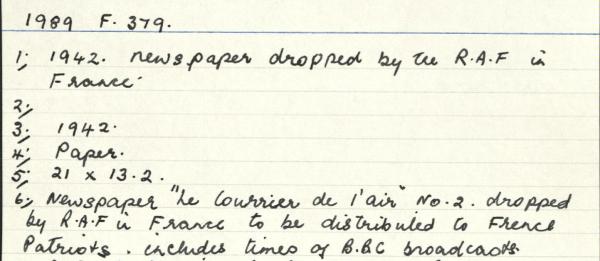 1989 F. 379.
1; 1942. newspaper dropped by the R.A.F in
France.
2;
3; 1942.
4; Paper.
5; 21 x 13.2.
6; Newspaper "Le Courrier de l'air" No.2. dropped
by R.A.F in France to be distributed to French
Patriots. includes times of B.B.C broadcasts.